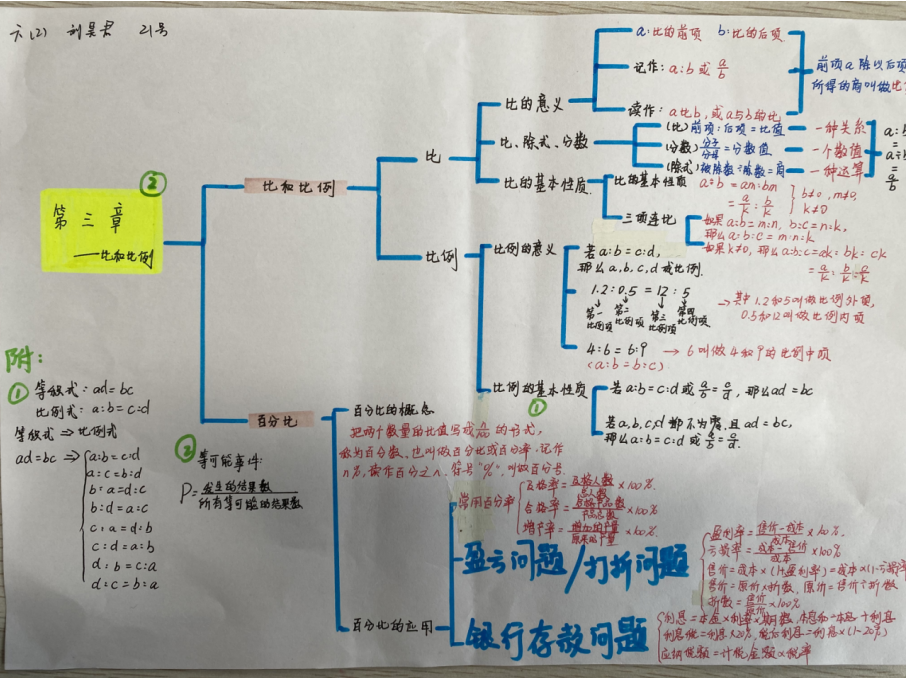 六(2) 刘昊君 21号
②
第三章
——比和比例
比和比例
比
比的意义
a:比的前项 b:比的后项
记作: a:b 或 a/b
读作: a比b, 或a与b的比
前项a除以后项
所得的商叫做比
比、除式、分数
(比) 前项:后项=比值 — 一种关系
(分数) 分子/分母=分数值 — 一个数值
(除式) 被除数÷除数=商 — 一种运算
a:
=
a÷
=
a/b
比的基本性质
比的基本性质
a÷b = am:bm
= a/k : b/k
b≠0, m≠0,
k≠0
三项连比
如果a:b=m:n, b:c=n:k,
那么a:b:c=m:n:k
如果k≠0, 那么a:b:c=ak:bk:ck
= a/k : b/k : c/k
比例
比例的意义
若a:b=c:d,
那么a,b,c,d成比例.
1.2:0.5=12:5
第一比例项 第二比例项 第三比例项 第四比例项
→其中1.2和5叫做比例外项,
0.5和12叫做比例内项
4:6=6:9 → 6叫做4和9的比例中项
(a:b=b:c)
比例的基本性质
①
若a:b=c:d 或 a/b=c/d, 那么ad=bc
若a,b,c,d都不为零,且ad=bc,
那么a:b=c:d 或 a/b=c/d.
百分比
百分比的概念
把两个数量的比值写成n/100的形式,
称为百分数,也叫做百分比或百分率.记作
n%, 读作百分之n. 符号"%"叫做百分号.
②
等可能事件:
P=发生的结果数/所有等可能的结果数
百分比的应用
常用百分率
及格率=及格人数/总人数×100%.
合格率=合格产品数/产品总数×100%
增产率=增加的产量/原来的产量×100%.
盈亏问题/打折问题
盈利率=售价-成本/成本×100%.
亏损率=成本-售价/成本×100%
售价=成本×(1+盈利率)=成本×(1-亏损率
售价=原价×折数, 原价=售价÷折数
折数=售价/原价×100%
银行存款问题
利息=本金×利率×期数, 本息和=本金+利息
利息税=利息×20%, 税后利息=利息×(1-20%)
应纳税额=计税金额×税率
附:
①
等积式: ad=bc
比例式: a:b=c:d
等积式⇒比例式
ad=bc ⇒ a:b=c:d
a:c=b:d
b:a=d:c
b:d=a:c
c:a=d:b
c:d=a:b
d:b=c:a
d:c=b:a